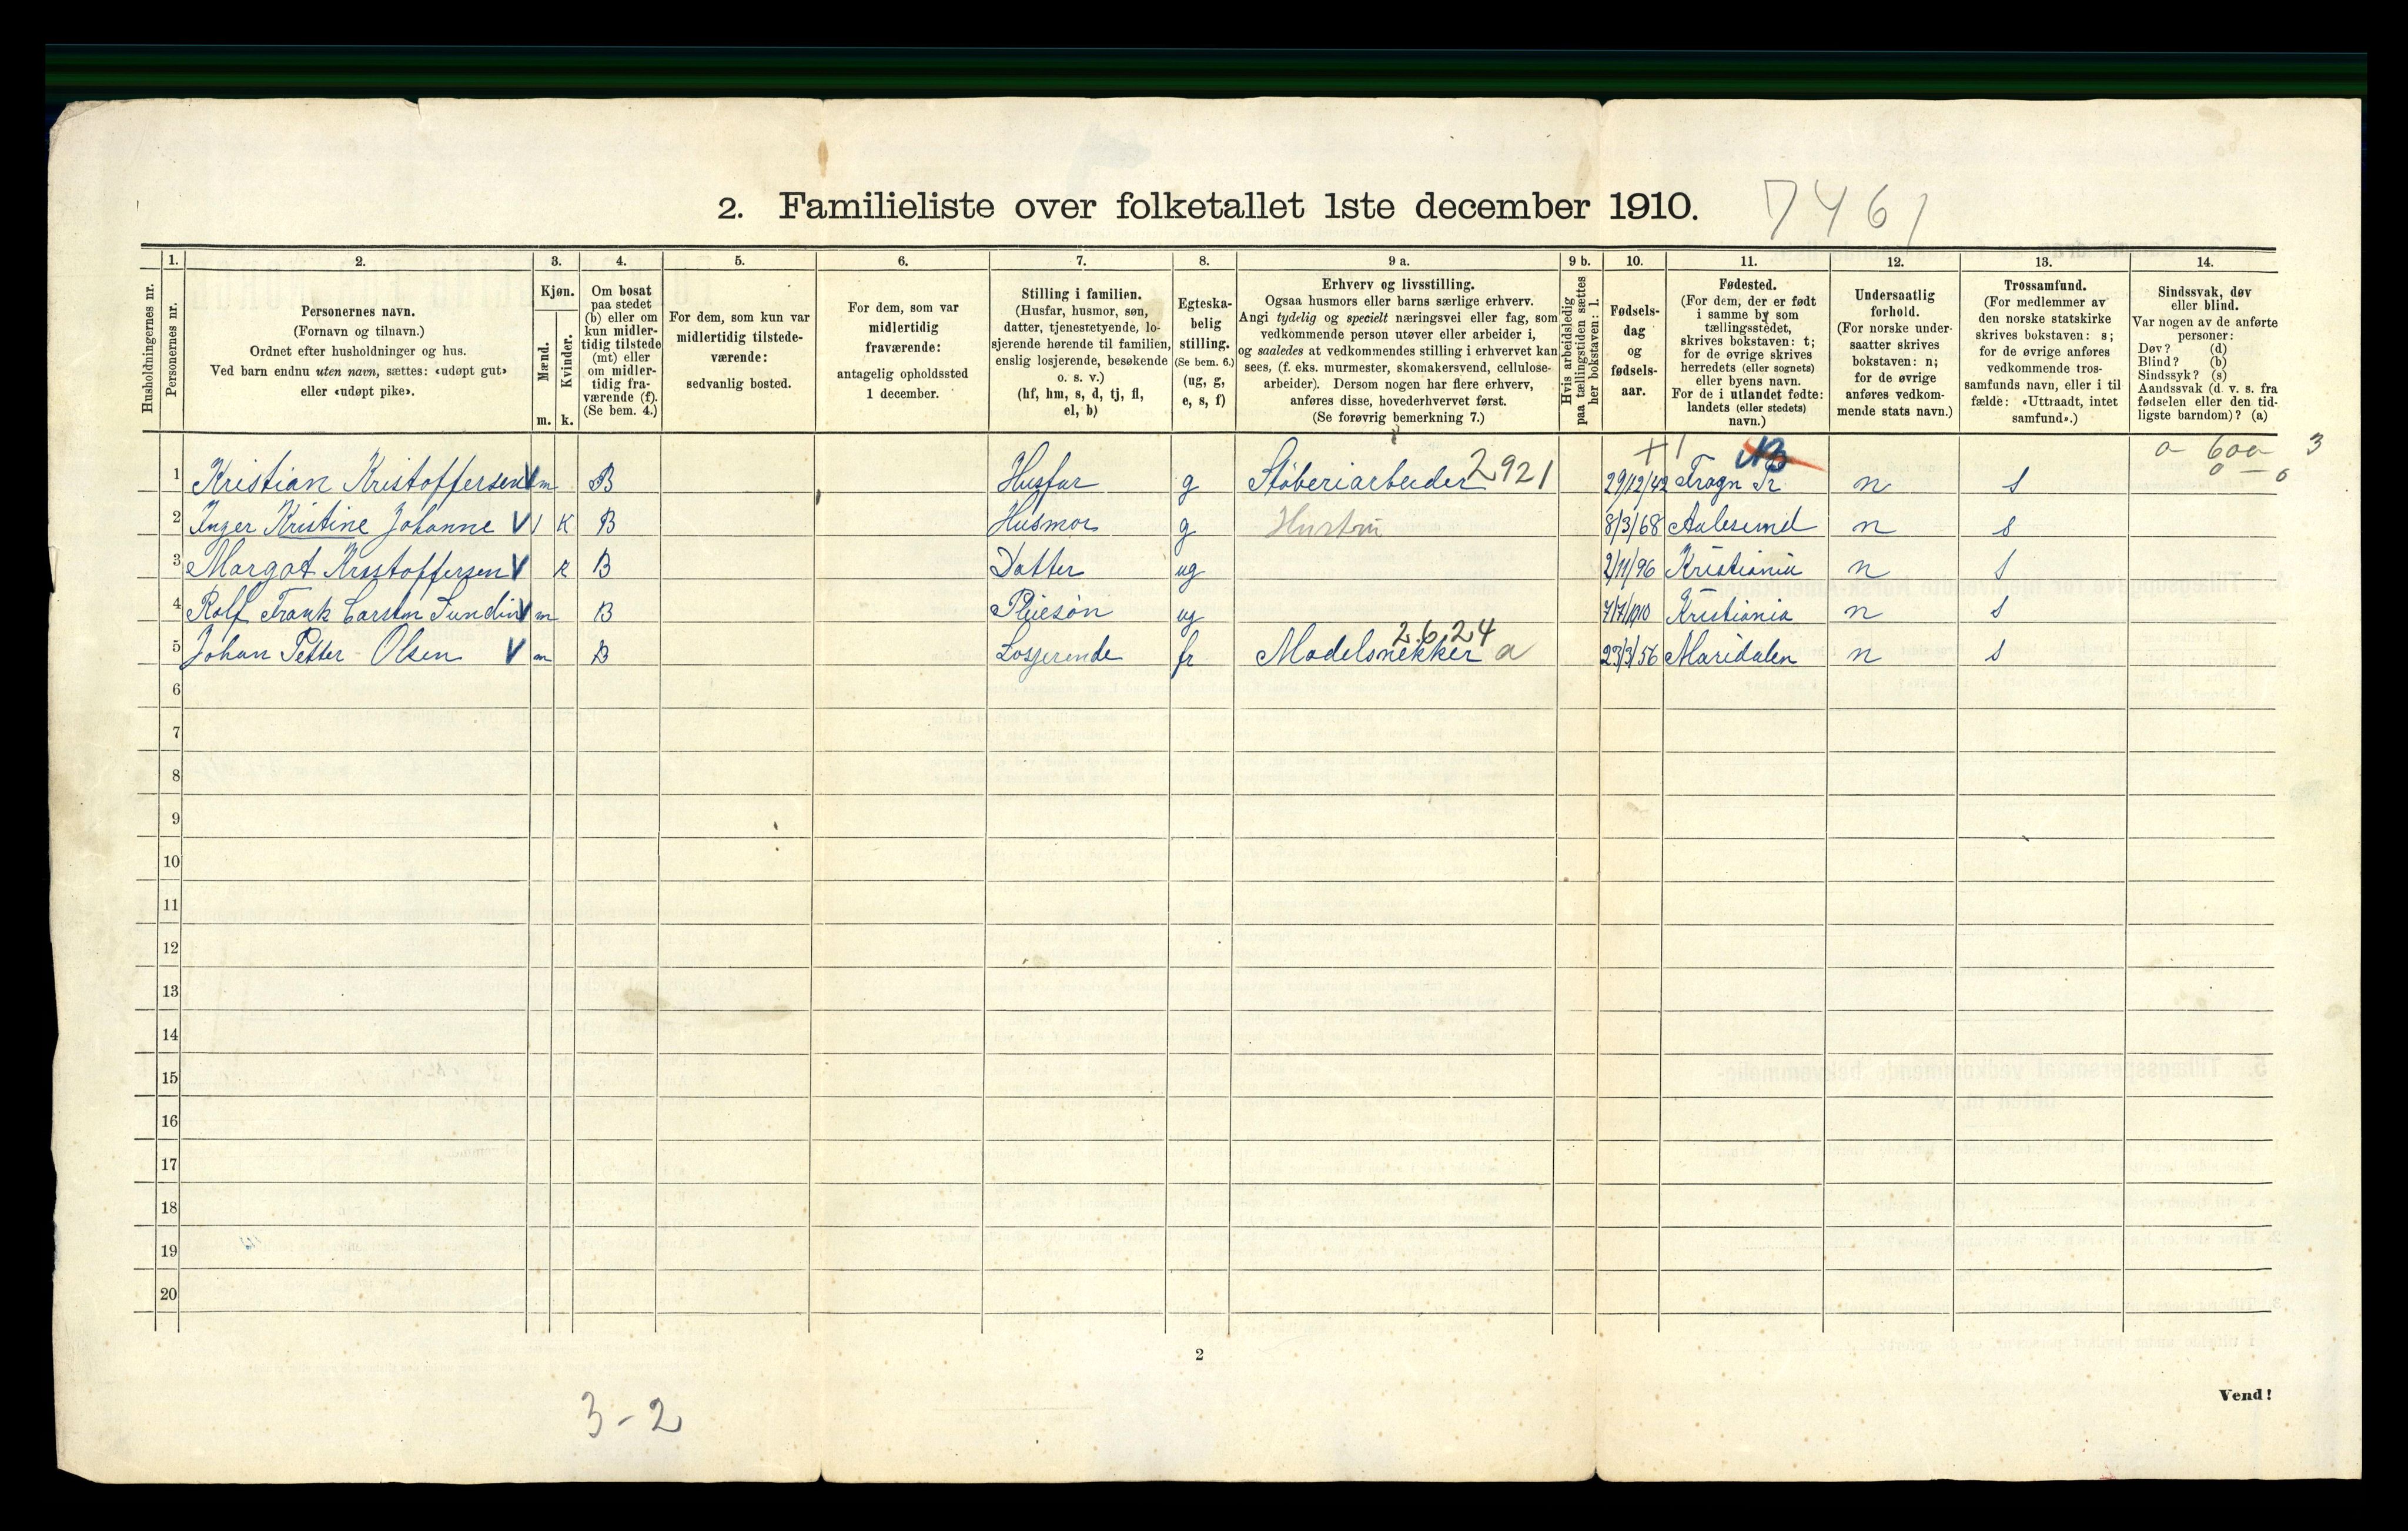 2. Familieliste over folketallet 1ste december 1910. 7461
Husholdningernes nr.
1.
Personernes nr.
2.
Personernes navn.
(Fornavn og tilnavn.)
Ordnet efter husholdninger og hus.
Ved barn endnu uten navn, sættes: «udøpt gut»
eller «udøpt pike».
3.
Kjøn.
Mænd.
m.
Kvinder.
k.
4.
Om bosat
paa stedet
(b) eller om
kun midler-
tidig tilstede
(mt) eller
om midler-
tidig fra-
værende (f).
(Se bem. 4.)
5.
For dem, som kun var
midlertidig tilstede-
værende:
sedvanlig bosted.
6.
For dem, som var
midlertidig
fraværende:
antagelig opholdssted
1 december.
7.
Stilling i familien.
(Husfar, husmor, søn,
datter, tjenestetyende, lo-
sjerende hørende til familien,
enslig losjerende, besøkende
o. s. v.)
(hf, hm, s, d, tj, fl,
el, b)
8.
Egteska-
belig
stilling.
(Se bem. 6.)
(ug, g,
e, s, f)
9 a.
Erhverv og livsstilling.
Ogsaa husmors eller barns særlige erhverv.
Angi tydelig og specielt næringsvei eller fag, som
vedkommende person utøver eller arbeider i,
og saaledes at vedkommendes stilling i erhvervet kan
sees, (f. eks. murmester, skomakersvend, cellulose-
arbeider). Dersom nogen har flere erhverv,
anføres disse, hovederhvervet først.
(Se forøvrig bemerkning 7.)
9 b.
Hvis arbeidsledig
paa tællingstiden sættes
her bokstaven: l.
10.
Fødsels-
dag
og
fødsels-
aar.
11.
Fødested.
(For dem, der er født
i samme by som
tællingsstedet,
skrives bokstaven: t;
for de øvrige skrives
herredets (eller sognets)
eller byens navn.
For de i utlandet fødte:
landets (eller stedets)
navn.)
12.
Undersaatlig
forhold.
(For norske under-
saatter skrives
bokstaven: n;
for de øvrige
anføres vedkom-
mende stats navn.)
13.
Trossamfund.
(For medlemmer av
den norske statskirke
skrives bokstaven: s;
for de øvrige anføres
vedkommende tros-
samfunds navn, eller i til-
fælde: «Uttraadt, intet
samfund».)
14.
Sindssvak, døv
eller blind.
Var nogen av de anførte
personer:
Døv? (d)
Blind? (b)
Sindssyk? (s)
Aandssvak (d. v. s. fra
fødselen eller den tid-
ligste barndom)? (a)
1 Kristian Kristoffersen V m B Husfar g Støberiarbeider 2921 29/12/42 Frogn n s
2 Inger Kristine Johanne V K B Husmor g Hustru 8/3/68 Aalesund n s
3 Margot Kristoffersen V k B Datter ug 2/11/96 Kristiania n s
4 Rolf Frank Carsten Sundin V m B Pleiesøn ug 7/7/1910 Kristiania n s
5 Johan Petter Olsen V m B Losjerende fr Modelsnekker a 2.6.24 23/3/56 Maridalen n s
6
7
8
9
10
11
12
13
14
15
16
17
18
19
20
2
Vend!
3-2